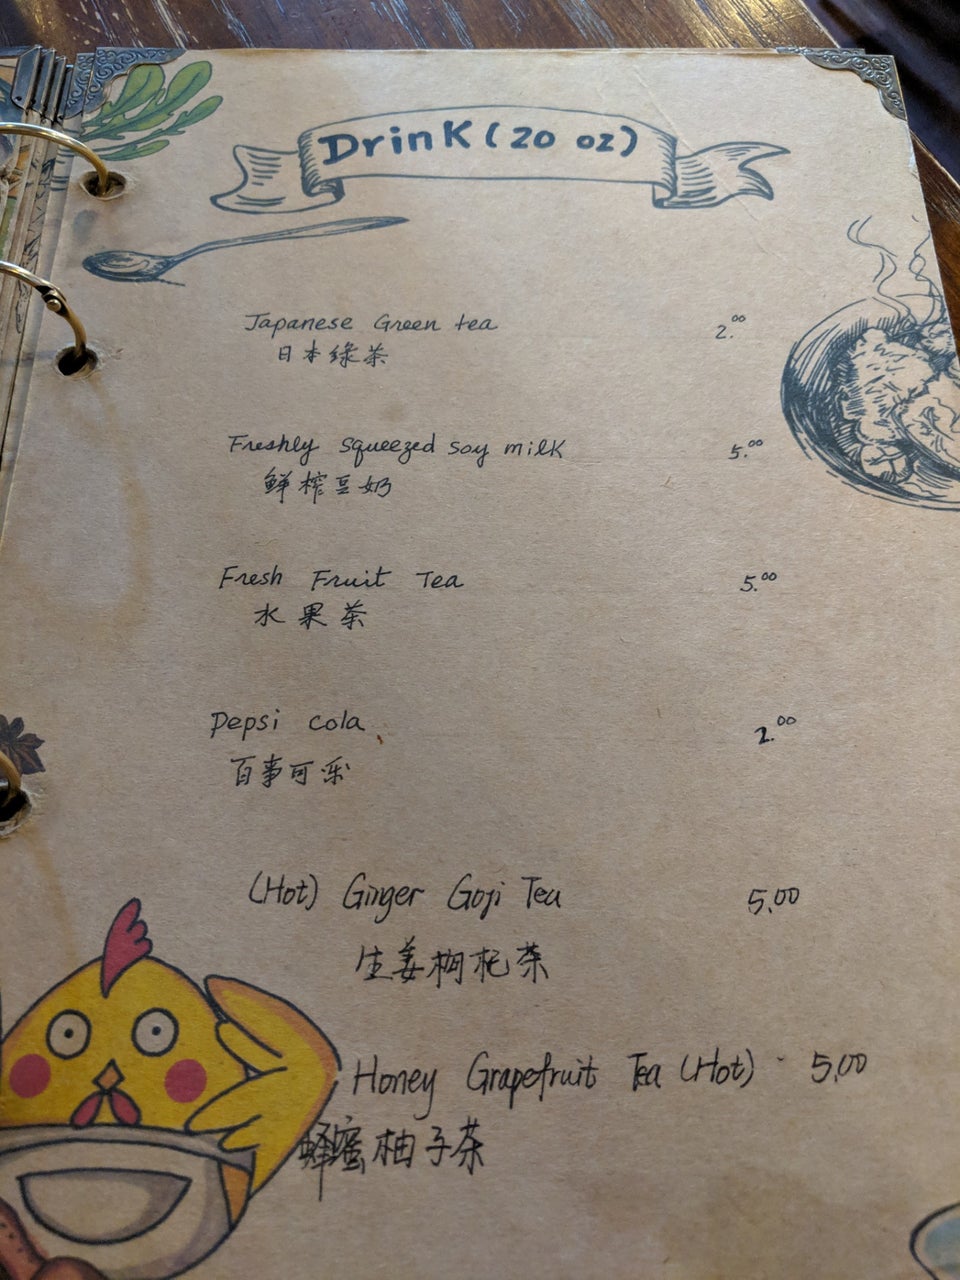 Drink (20 oz)
Japanese Green tea 2.00
日本綠茶
Freshly squeezed soy milk 5.00
鲜榨豆奶
Fresh Fruit Tea 5.00
水果茶
Pepsi cola 2.00
百事可乐
(Hot) Ginger Goji Tea 5.00
生姜枸杞茶
Honey Grapefruit Tea (Hot) 5.00
蜂蜜柚子茶